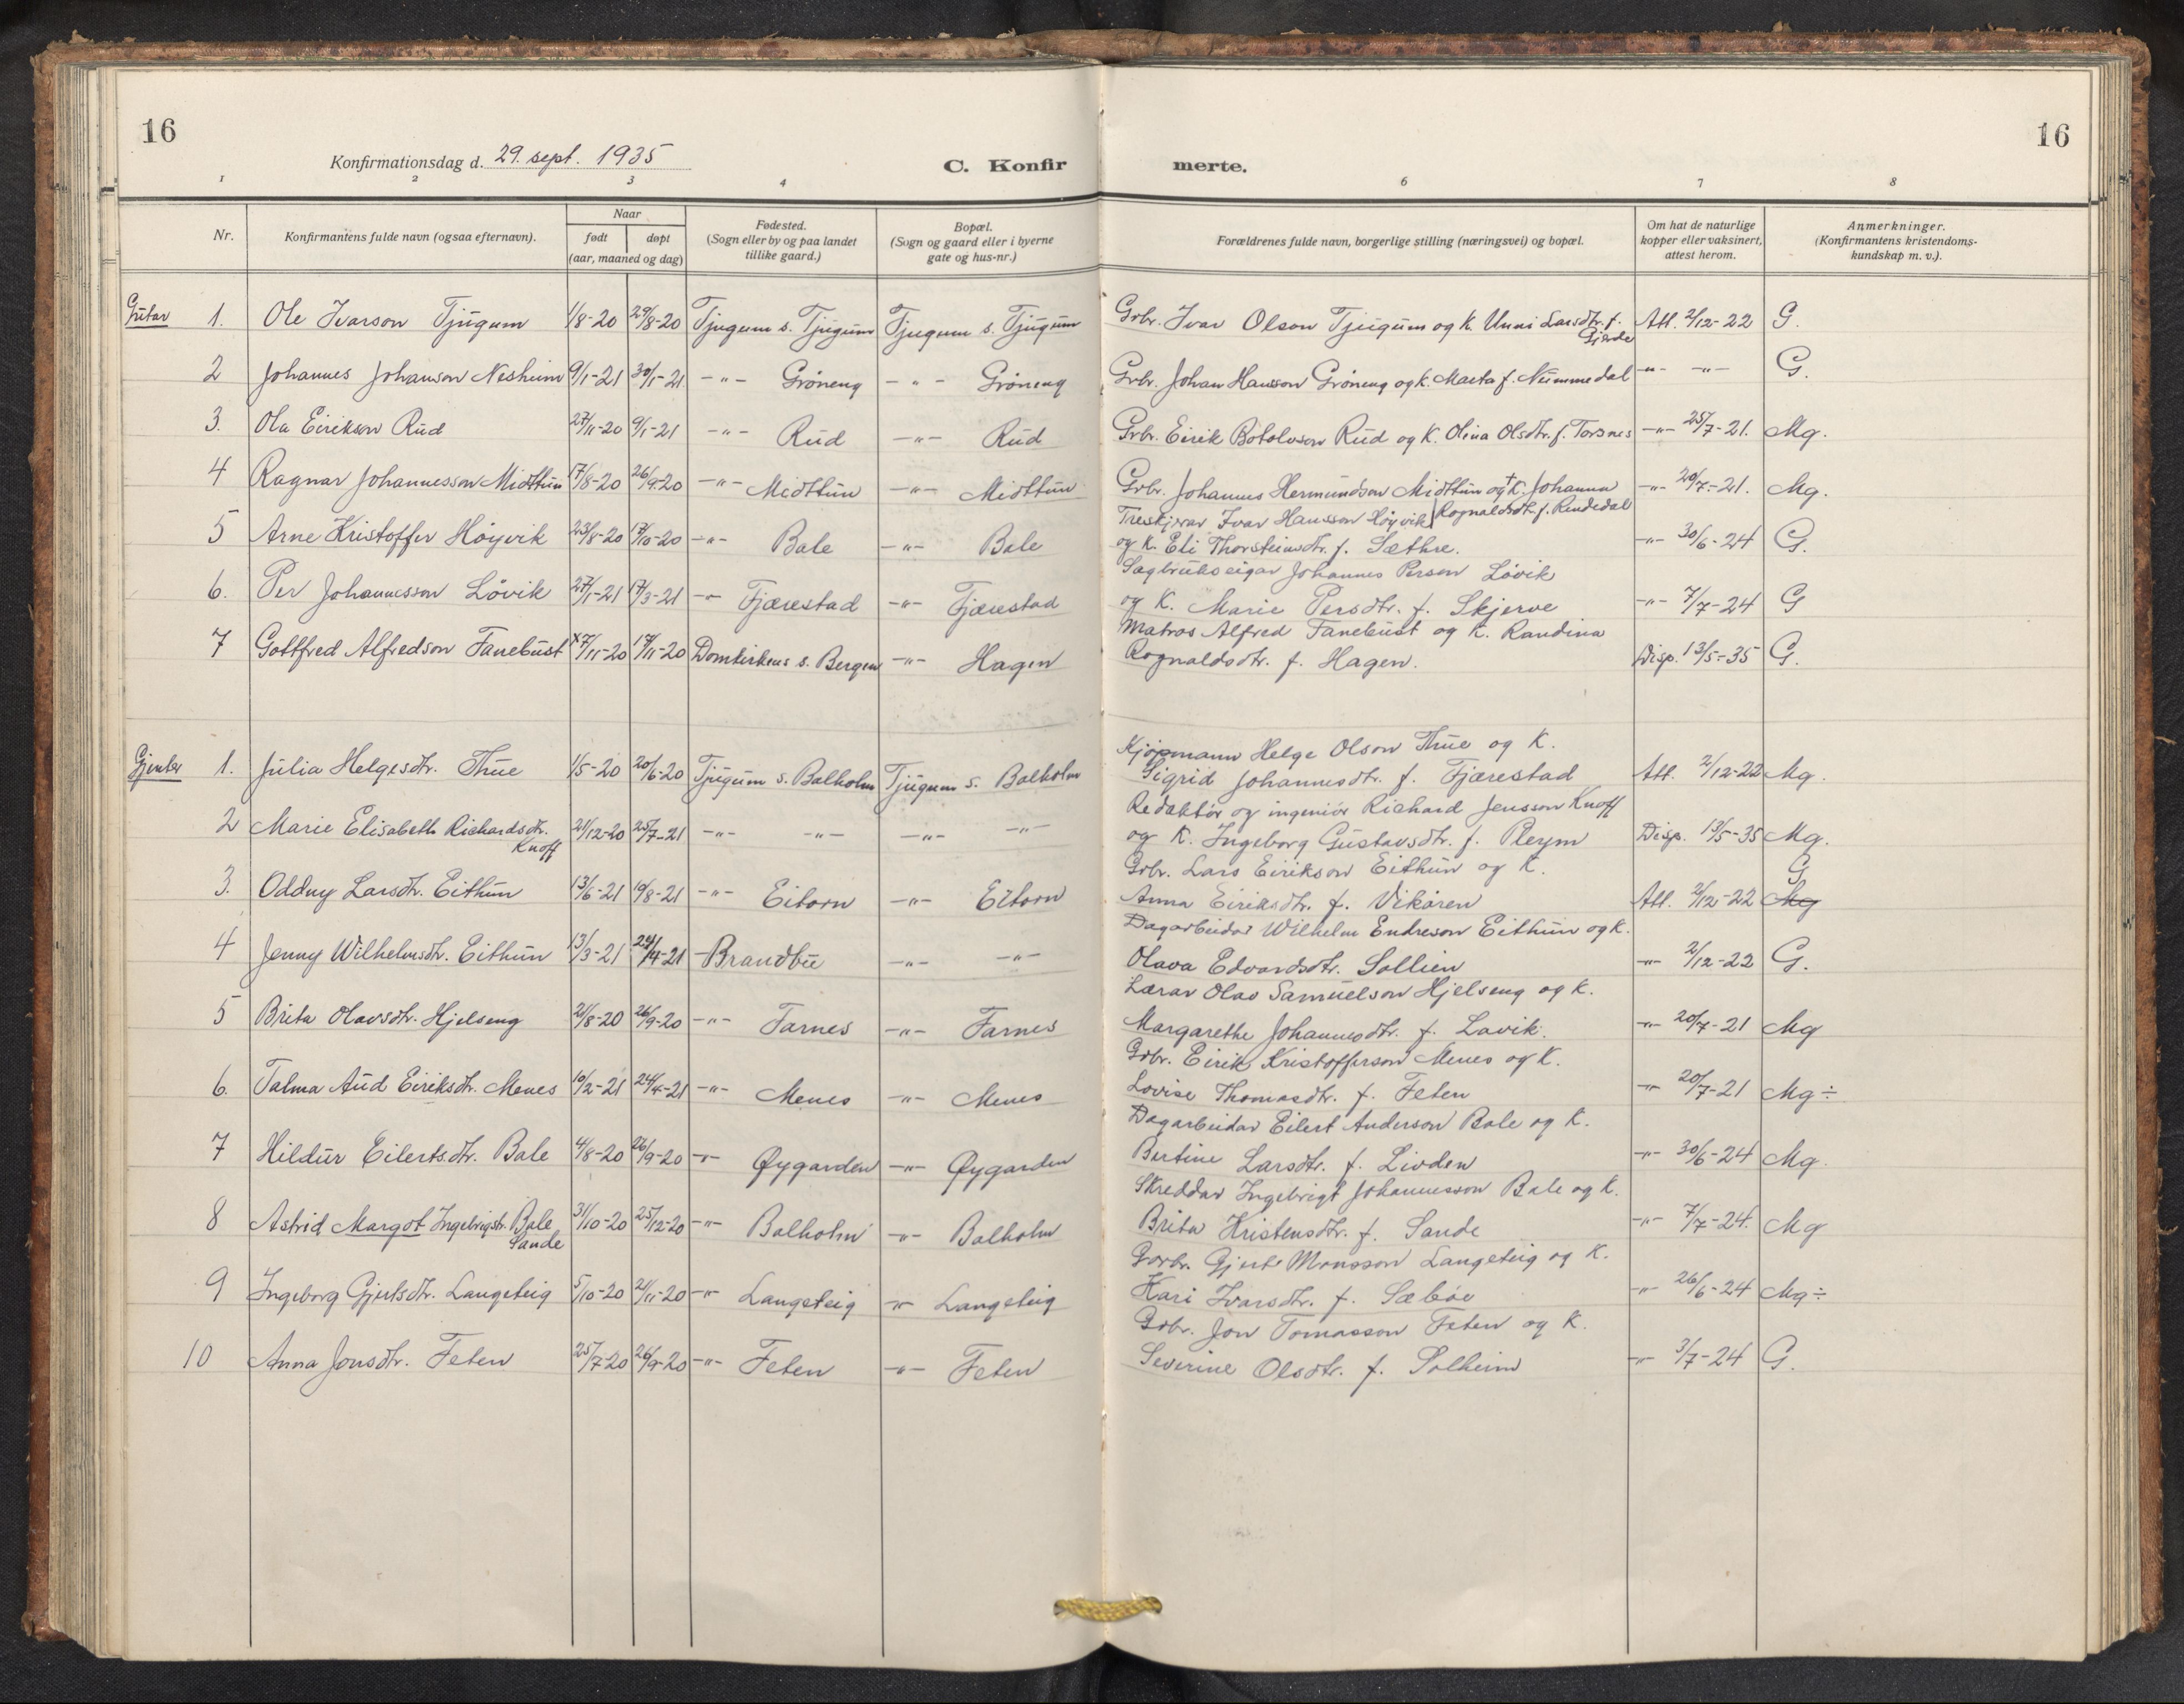 16
16
Konfirmationsdag d. 29. sept. 1935
C. Konfir merte.
1 2 3 4 6 7 8
Nr.
Konfirmantens fulde navn (ogsaa efternavn).
Naar
født døpt
(aar, maaned og dag)
Fødested.
(Sogn eller by og paa landet
tillike gaard.)
Bopæl.
(Sogn og gaard eller i byerne
gate og hus-nr.)
Forældrenes fulde navn, borgerlige stilling (næringsvei) og bopæl.
Om hat de naturlige
kopper eller vaksinert,
attest herom.
Anmerkninger.
(Konfirmantens kristendoms-
kundskap m. v.).
Gutar 1. Ole Ivarson Tjugum 1/8-20 29/8-20 Tjugum s. Tjugum Tjugum s. Tjugum Grbr. Ivar Olson Tjugum og K. Unni Larsdtr. f. Gjerde Att. 2/12-22 G.
2 Johannes Johanson Nesheim 9/1-21 30/1-21 -"- Grøneng -"- Grøneng Grbr. Johan Hansson Grøneng og K. Marta f. Nummedal -"- -"- G.
3. Ola Eirikson Rud 27/11-20 9/1-21 -"- Rud -"- Rud Grbr. Eirik Botolvson Rud og K. Olina Olsdtr. f. Torsnes -"- 25/7-21. Mg.
4 Ragnar Johannesson Midttun 17/8-20 26/9-20 -"- Midttun -"- Midttun Grbr. Johannes Hermundson Midttun og +K. Johanna Rognaldsdtr. f. Rendedal -"- 20/7-21. Mg.
5 Arne Kristoffer Höyvik 23/8-20 17/10-20 -"- Bale -"- Bale Treskjerar Ivar Hansson Höyvik
og K. Eli Thorsteinsdtr. f. Sæthre. -"- 30/6-24 G.
6. Per Johannesson Lövik 27/1-21 17/3-21 -"- Fjærestad -"- Fjærestad Sagbrukseigar Johannes Person Lövik
og K. Marie Persdtr. f. Skjerve -"- 7/7-24 G
7 Gottfred Alfredson Tanebust x 7/11-20 14/11-20 Domkirkens s. Bergen -"- Hagen Matros Alfred Tanebust og K. Randina
Rognaldsdtr. f. Hagen. Disp. 13/5-35 G.
Gjenter 1. Julia Helgesdtr. Thue 1/5-20 20/6-20 Tjugum s. Balholm Tjugum s. Balholm Kjøpmann Helge Olson Thue og K.
Sigrid Johannesdtr. f. Fjærestad Att. 2/12-22 Mg.
2 Marie Elisabeth Richardsdtr. Knoff 21/12-20 25/7-21 -"- -"- -"- -"- Redaktör og ingeniör Richard Jensson Knoff
og K. Ingeborg Gustavsdtr. f. Pleym Disp. 13/5-35 Mg.
3. Oddny Larsdtr. Eithun 13/6-21 10/8-21 -"- Eitorn -"- Eitorn Grbr. Lars Eirikson Eithun og K.
Anna Eiriksdtr. f. Vikören Att. 2/12-22 G Mg
4 Jenny Wilhelmsdtr. Eithun 13/3-21 24/4-21 -"- Brandbu -"- -"- Dagarbeidar Wilhelm Endreson Eithun og K.
Olava Edvardsdtr. Sollien -"- 2/12-22 G.
5 Brita Olavsdtr. Hjelseng 21/8-20 26/9-20 -"- Farnes -"- Farnes Lærar Olav Samuelson Hjelseng og K.
Margarethe Johannesdtr. f. Lavik. -"- 20/7-21 Mg
6. Talma Aud Eiriksdtr. Menes 10/2-21 24/4-21 -"- Menes -"- Menes Grbr. Eirik Kristofferson Menes og K.
Lovise Thomasdtr. f. Feten -"- 20/7-21 Mg ÷
7 Hildur Eilertsdtr. Bale 4/8-20 26/9-20 -"- Øygarden -"- Øygarden Dagarbeidar Eilert Anderson Bale og K.
Bertine Larsdtr. f. Livden -"- 30/6-24 Mg.
8 Astrid Margot Ingebrigtr. Bale Sande 31/10-20 25/12-20 -"- Balholm -"- Balholm Skreddar Ingebrigt Johannesson Bale og K.
Brita Kristensdtr. f. Sande -"- 7/7-24. Mg
9 Ingeborg Gjertsdtr. Langeteig 5/10-20 21/11-20 -"- Langeteig -"- Langeteig Grbr. Gjert Monsson Langeteig og K.
Kari Ivarsdtr. f. Sæböe -"- 26/6-24 Mg ÷
10 Anna Jonsdtr. Feten 25/7-20 26/9-20 -"- Feten -"- Feten Grbr. Jon Tomasson Feten og K.
Severine Olsdtr. f. Solheim -"- 3/7-24 G.